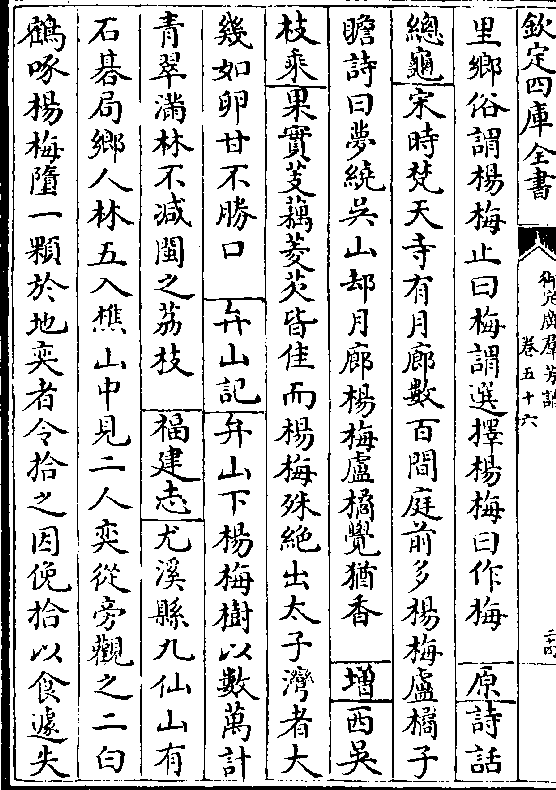 欽定四庫全書
御定廣羣芳譜
卷五十六
里鄉俗謂楊梅止曰梅謂選擇楊梅曰作梅 原詩話
總龜宋時梵天寺有月廊數百間庭前多楊梅盧橘子
瞻詩曰夢繞吳山却月廊楊梅盧橘覺猶香 增西吳
枝乘果實芰藕菱芡皆佳而楊梅殊絶出太子灣者大
幾如卵甘不勝口 弁山記弁山下楊梅樹以數萬計
青翠滿林不减閩之荔枝 福建志尤溪縣九仙山有
石碁局鄉人林五入樵山中見二人奕從旁觀之二白
鶴啄楊梅墮一顆於地奕者令拾之因俛拾以食遽失